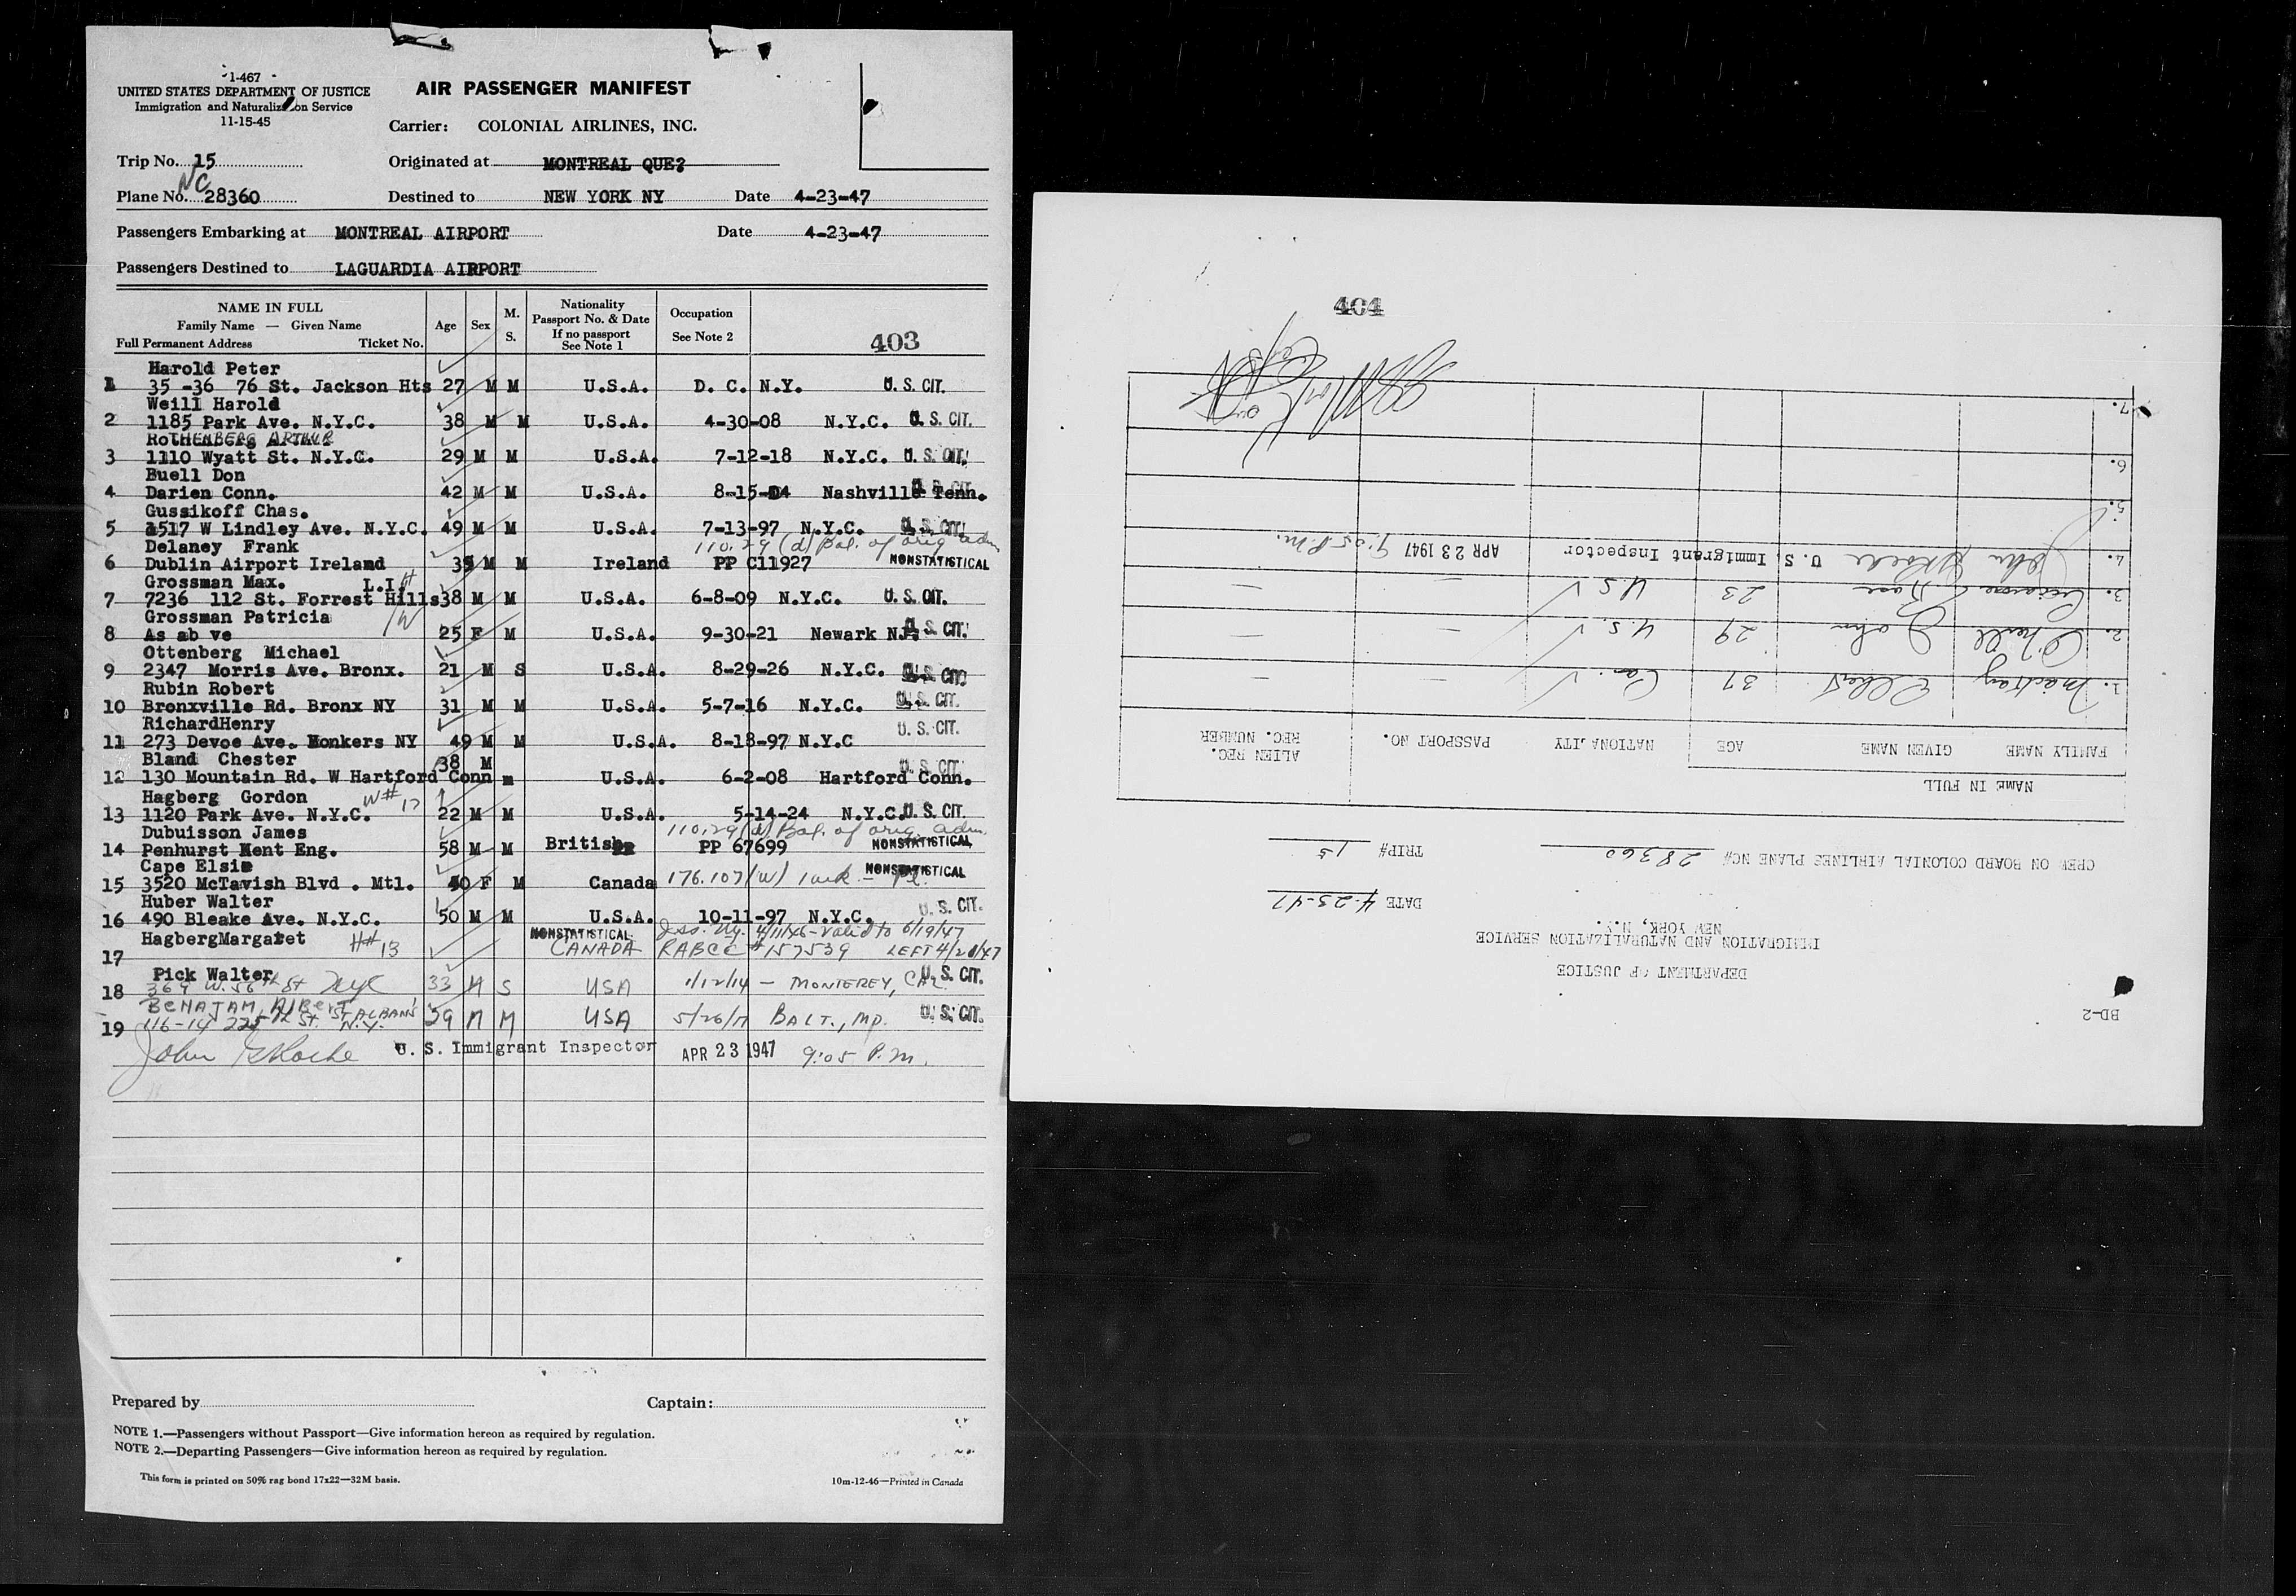 1-467
UNITED STATES DEPARTMENT OF JUSTICE
Immigration and Naturalization Service
11-15-45
AIR PASSENGER MANIFEST
Carrier: COLONIAL AIRLINES, INC.
Trip No. 15
Originated at MONTREAL QUE?
NC
Plane No. 28360
Destined to NEW YORK NY Date 4-23-47
Passengers Embarking at MONTREAL AIRPORT Date 4-23-47
Passengers Destined to LAGUARDIA AIRPORT
NAME IN FULL
Family Name — Given Name
Full Permanent Address Ticket No.
Age Sex M. S.
Nationality
Passport No. & Date
If no passport
See Note 1
Occupation
See Note 2
403
Harold Peter
1 35 -36 76 St. Jackson Hts 27 M M U.S.A. D. C. N.Y. U. S. CIT.
Weill Harold
2 1185 Park Ave. N.Y.C. 38 M M U.S.A. 4-30-08 N.Y.C. U. S. CIT.
RoTHENBERG ARTHUR
3 1110 Wyatt St. N.Y.C. 29 M M U.S.A. 7-12-18 N.Y.C. U. S. CIT.
Buell Don
4 Darien Conn. 42 M M U.S.A. 8-15-04 Nashville Tenn. U. S. CIT.
Gussikoff Chas.
5 1517 W Lindley Ave. N.Y.C. 49 M M U.S.A. 7-13-97 N.Y.C. U. S. CIT.
Delaney Frank 110.29 (d) Bal. of orig adm
6 Dublin Airport Ireland 35 M M Ireland PP C11927 NONSTATISTICAL
Grossman Max. L.I. H
7 7236 112 St. Forrest Hills 38 M M U.S.A. 6-8-09 N.Y.C. U. S. CIT.
Grossman Patricia /W
8 As ab ve 25 F M U.S.A. 9-30-21 Newark N.J. U. S. CIT.
Ottenberg Michael
9 2347 Morris Ave. Bronx. 21 M S U.S.A. 8-29-26 N.Y.C. U. S. CIT.
Rubin Robert
10 Bronxville Rd. Bronx NY 31 M M U.S.A. 5-7-16 N.Y.C. U. S. CIT.
RichardHenry
11 273 Devoe Ave. Monkers NY 49 M M U.S.A. 8-18-97 N.Y.C U. S. CIT.
Bland Chester 38 M
12 130 Mountain Rd. W Hartford Conn m U.S.A. 6-2-08 Hartford Conn. U. S. CIT.
Hagberg Gordon W# 17
13 1120 Park Ave. N.Y.C. 22 M M U.S.A. 5-14-24 N.Y.C. U. S. CIT.
Dubuisson James 110.29 (d) Bal. of orig. adm.
14 Penhurst Kent Eng. 58 M M British PP 67699 NONSTATISTICAL
Cape Elsie
15 3520 McTavish Blvd . Mtl. 40 F M Canada 176.107 (W) NONSTATISTICAL
Huber Walter
16 490 Bleake Ave. N.Y.C. 50 M M U.S.A. 10-11-97 N.Y.C. U. S. CIT.
HagbergMargaret H# 13 NONSTATISTICAL Iss. Ny. 4/11/46 - valid to 6/19/47
17 CANADA RABCC #157539 LEFT 4/20/47
Pick Walter
18 364 W. 56th St NYC 33 M S USA 1/12/14 - MONTEREY, CAL. U. S. CIT.
BENATAM, AlBerT
19 116-14 225th St. ST ALBANS N.Y. 29 M M USA 5/26/17 BALT., MD. U. S. CIT.
John Roche U. S. Immigrant Inspector APR 23 1947 9:05 P.M.
Prepared by Captain:
NOTE 1.—Passengers without Passport—Give information hereon as required by regulation.
NOTE 2.—Departing Passengers—Give information hereon as required by regulation.
This form is printed on 50% rag bond 17x22—32M basis.
10m-12-46—Printed in Canada
404
BD-2
DEPARTMENT OF JUSTICE
IMMIGRATION AND NATURALIZATION SERVICE
NEW YORK, N.Y.
DATE 4-23-47
CREW ON BOARD COLONIAL AIRLINES PLANE NC# 28360 TRIP# 15
NAME IN FULL
FAMILY NAME GIVEN NAME AGE NATIONALITY PASSPORT NO. ALIEN REG. REC. NUMBER
1. Mackay Elbert 37 Can. — —
2. O'Neill John 29 U.S. — —
3. Rose 23 U.S. — —
4. John Roche U. S. Immigrant Inspector APR 23 1947 9:05 P.M.
5.
6.
7.